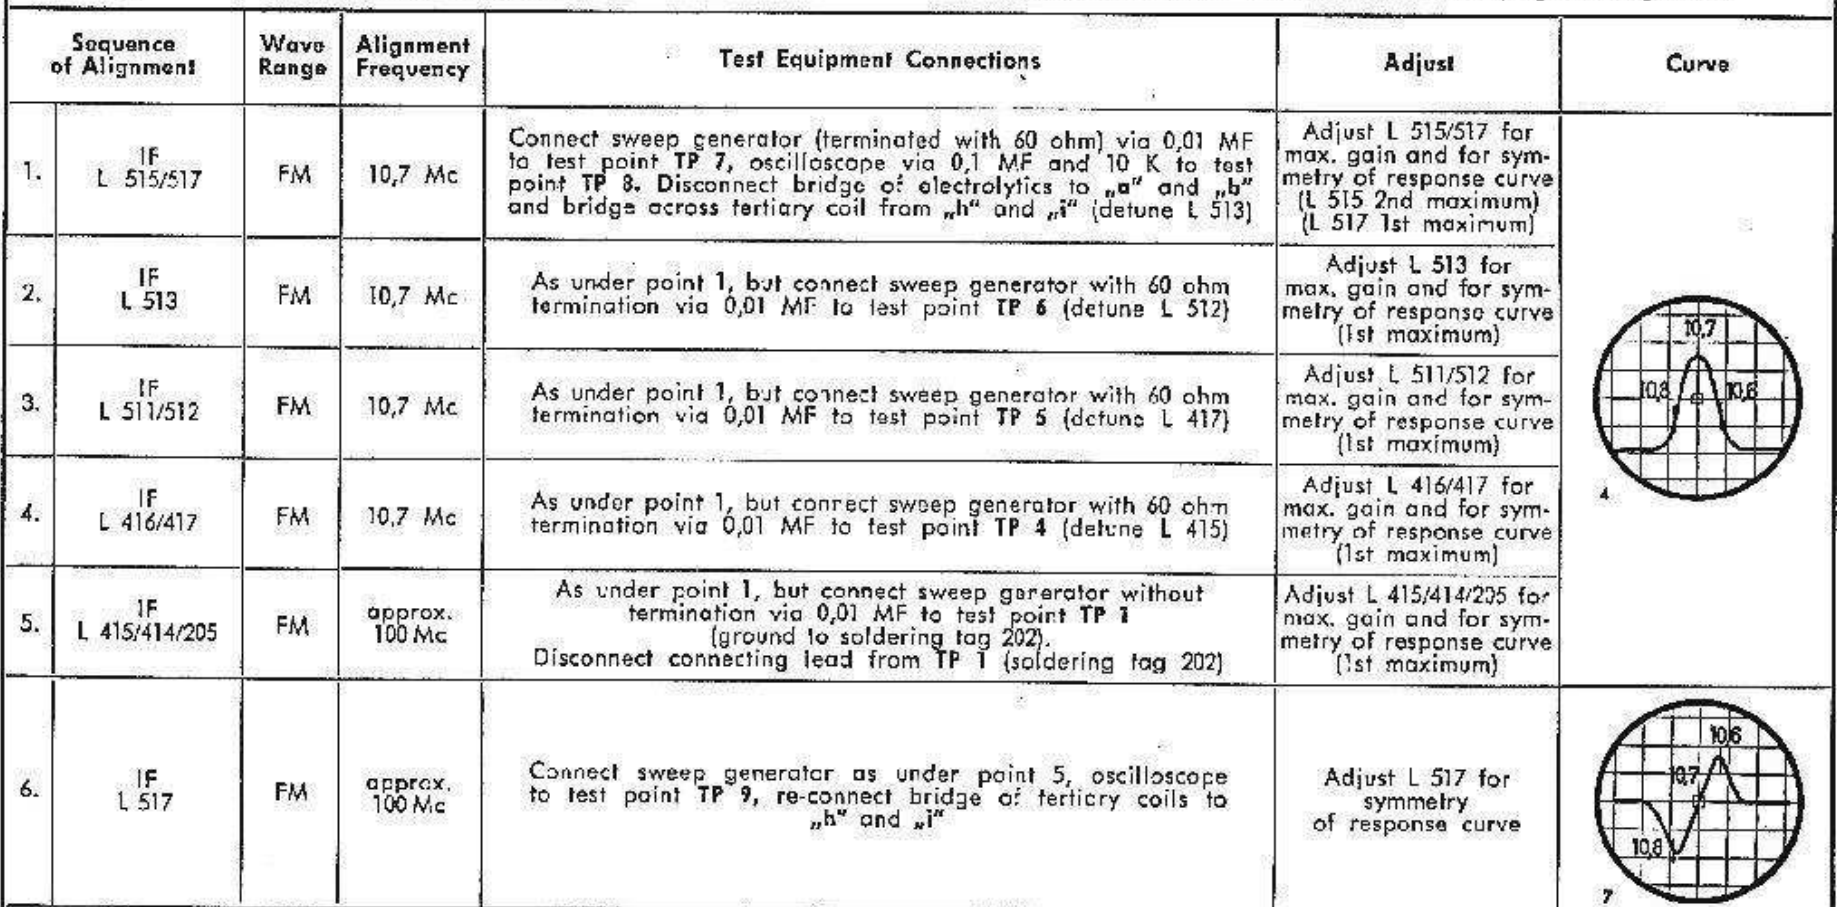 Sequence
of Alignment
Wave
Range
Alignment
Frequency
Test Equipment Connections
Adjust
Curve
1.
IF
L 515/517
FM
10,7 Mc
Connect sweep generator (terminated with 60 ohm) via 0,01 MF
to test point TP 7, oscilloscope via 0,1 MF and 10 K to test
point TP 8. Disconnect bridge of electrolytics to „a" and „b"
and bridge across tertiary coil from „h" and „i" (detune L 513)
Adjust L 515/517 for
max. gain and for sym-
metry of response curve
(L 515 2nd maximum)
(L 517 1st maximum)
2.
IF
L 513
FM
10,7 Mc
As under point 1, but connect sweep generator with 60 ohm
termination via 0,01 MF to test point TP 6 (detune L 512)
Adjust L 513 for
max. gain and for sym-
metry of response curve
(1st maximum)
3.
IF
L 511/512
FM
10,7 Mc
As under point 1, but connect sweep generator with 60 ohm
termination via 0,01 MF to test point TP 5 (detune L 417)
Adjust L 511/512 for
max. gain and for sym-
metry of response curve
(1st maximum)
10,7
10,8
10,6
4
4.
IF
L 416/417
FM
10,7 Mc
As under point 1, but connect sweep generator with 60 ohm
termination via 0,01 MF to test point TP 4 (detune L 415)
Adjust L 416/417 for
max. gain and for sym-
metry of response curve
(1st maximum)
5.
IF
L 415/414/205
FM
approx.
100 Mc
As under point 1, but connect sweep generator without
termination via 0,01 MF to test point TP 1
(ground to soldering tag 202).
Disconnect connecting lead from TP 1 (soldering tag 202)
Adjust L 415/414/205 for
max. gain and for sym-
metry of response curve
(1st maximum)
6.
IF
L 517
FM
approx.
100 Mc
Connect sweep generator as under point 5, oscilloscope
to test point TP 9, re-connect bridge of tertiary coils to
„h" and „i"
Adjust L 517 for
symmetry
of response curve
10,6
10,7
10,8
7